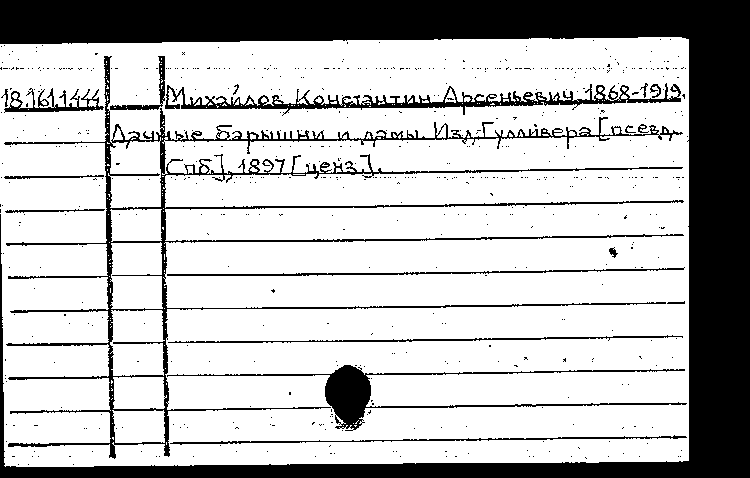 18.161.1.444 Михайлов, Константин Арсеньевич, 1868-1919.
Дачные барышни и дамы. Изд. Гулливера [псевд.
Спб.], 1897 [ценз.].